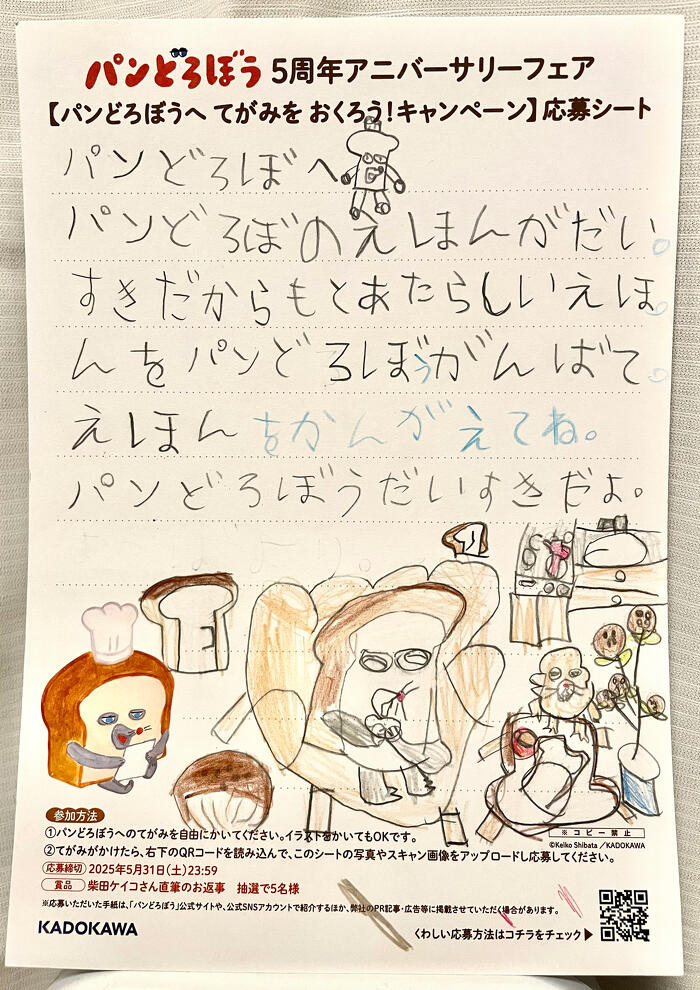 パンどろぼう 5周年アニバーサリーフェア
【パンどろぼうへ てがみを おくろう!キャンペーン】応募シート
パンどろぼへ
パンどろぼのえほんがだい。
すきだからもとあたらしいえほ。
んをパンどろぼうがんばて。
えほんをかんがえてね。
パンどろぼうだいすきだよ。
参加方法
①パンどろぼうへのてがみを自由にかいてください。イラストをかいてもOKです。
※コピー禁止
©Keiko Shibata/KADOKAWA
②てがみがかけたら、右下のQRコードを読み込んで、このシートの写真やスキャン画像をアップロードし応募してください。
応募締切 2025年5月31日(土)23:59
賞品 柴田ケイコさん直筆のお返事 抽選で5名様
※応募いただいた手紙は、「パンどろぼう」公式サイトや、公式SNSアカウントで紹介するほか、弊社のPR記事・広告等に掲載させていただく場合があります。
KADOKAWA
くわしい応募方法はコチラをチェック▶